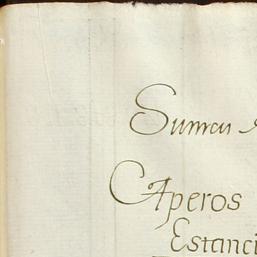 Suman
Aperos
Estanci